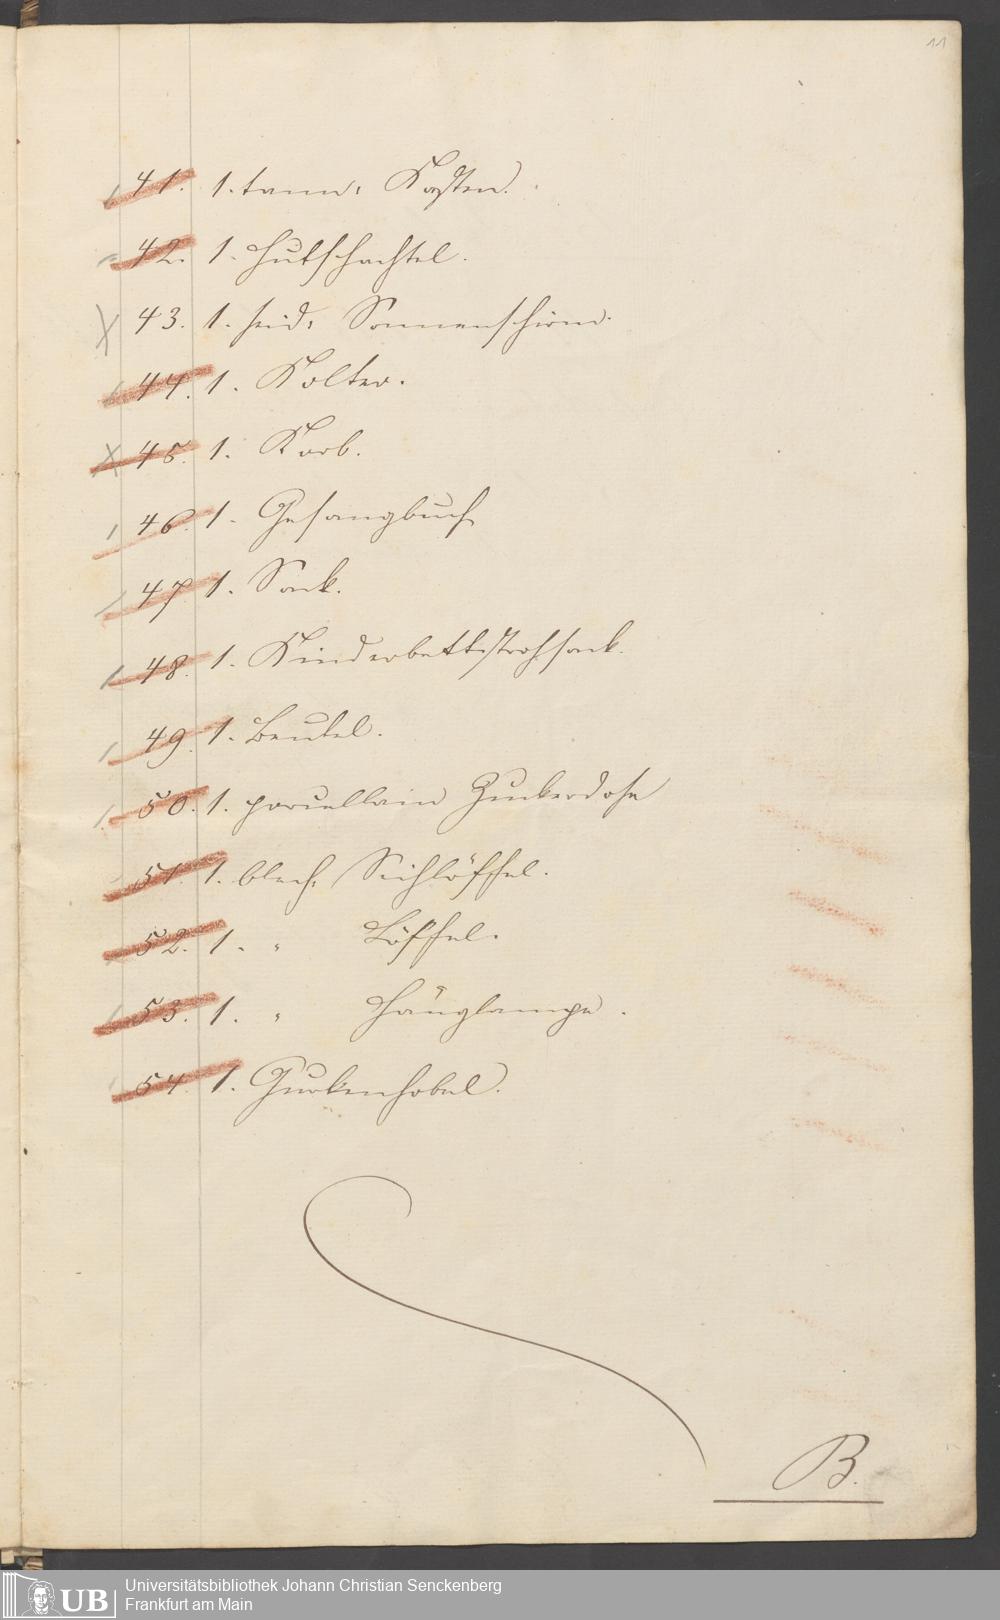 11
41. 1. tann: Kasten.
42. 1. Hutschachtel.
43. 1. seid: Sonnenschirm.
44. 1. Kolter.
45. 1. Korb.
46. 1. Gesangbuch
47. 1. Sack.
48. 1. Kinderbettstrohsack.
49. 1. Beutel.
50. 1. porcellain Zuckerdose
51. 1. blech. Seihlöffel.
52. 1. " Löffel.
53. 1. " Hänglampe.
54. 1. Gurkenhobel.
B.
UB
Universitätsbibliothek Johann Christian Senckenberg
Frankfurt am Main